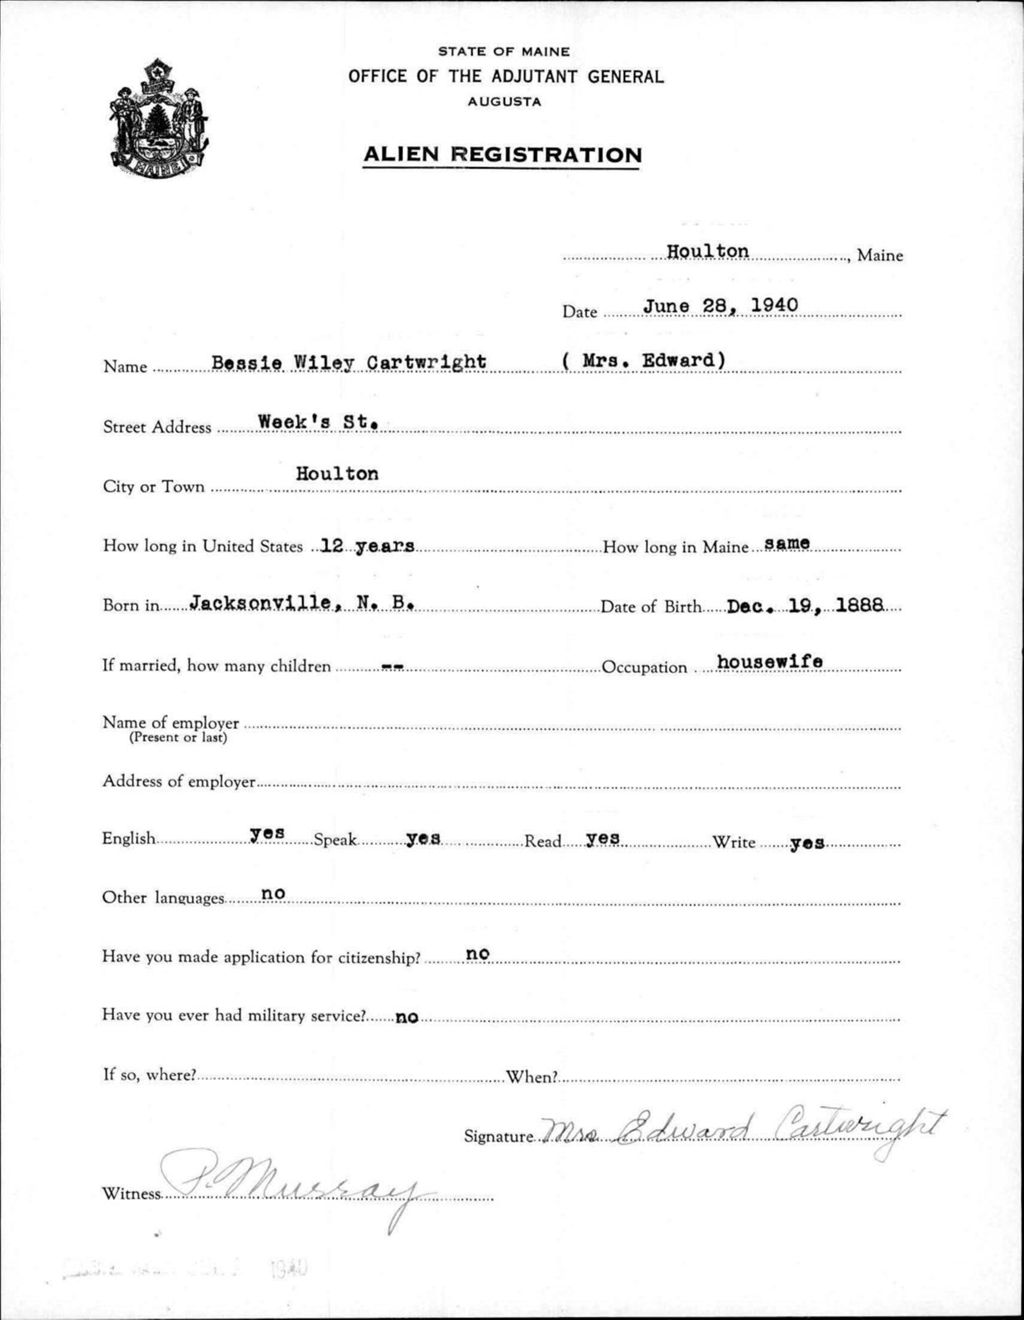 STATE OF MAINE
OFFICE OF THE ADJUTANT GENERAL
AUGUSTA
ALIEN REGISTRATION
MAINE
Houlton, Maine
Date June 28, 1940
Name Bessie Wiley Cartwright ( Mrs. Edward)
Street Address Week's St.
City or Town Houlton
How long in United States 12 years How long in Maine same
Born in Jacksonville, N. B. Date of Birth Dec. 19, 1888
If married, how many children -- Occupation housewife
Name of employer
(Present or last)
Address of employer
English yes Speak yes Read yes Write yes
Other languages no
Have you made application for citizenship? no
Have you ever had military service? no
If so, where? When?
Signature Mrs Edward Cartwright
Witness P. Murray
1940